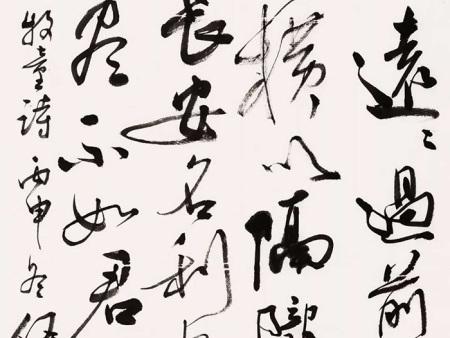 遠〻過前
横吹隔隴
長安名利
盡不如君
牧童詩 丙申冬